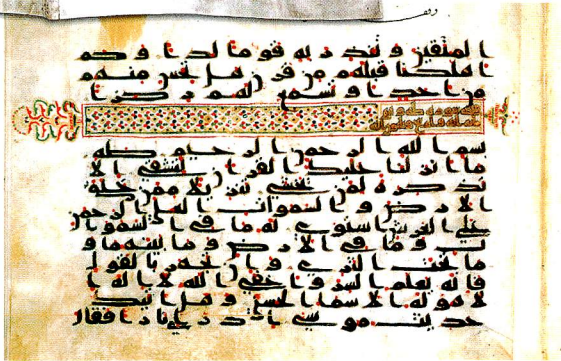 وقف
المتقين وتنذر به قوما لدا وكم
اهلكنا قبلهم من قرن هل تحس منهم
من احد او تسمع لهم ركزا
بسم الله الرحمن الرحيم طه
ما انزلنا عليك القران لتشقى الا
تذكرة لمن يخشى تنزيلا ممن خلق
الارض والسموات العلى الرحمن
على العرش استوى له ما في السموا
ت وما في الارض وما بينهما و
ما تحت الثرى وان تجهر بالقول
فانه يعلم السر واخفى الله لا اله ا
لا هو له الاسما الحسنى وهل اتيك
حديث موسى اذ را نارا فقال